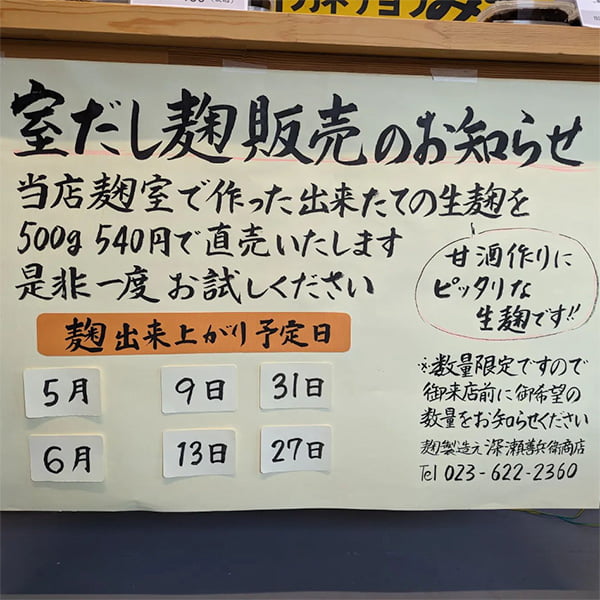 室だし麹販売のお知らせ
当店麹室で作った出来たての生麹を
500g 540円で直売いたします
是非一度 お試しください
甘酒作りに
ピッタリな
生麹です!!
麹出来上がり予定日
5月 9日 31日
6月 13日 27日
※数量限定ですので
御来店前に御希望の
数量をお知らせください
麹製造元 深瀬善兵衛商店
Tel 023-622-2360